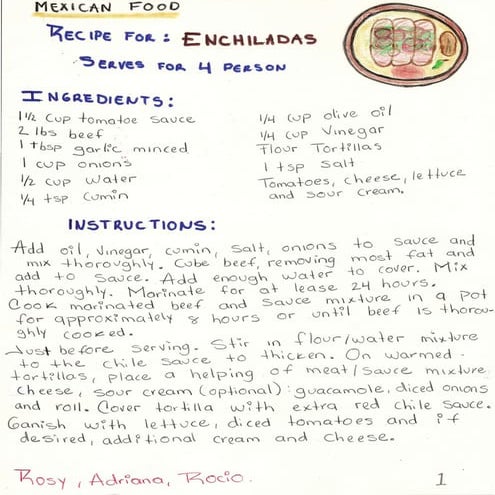 MEXICAN FOOD
RECIPE FOR: ENCHILADAS
SERVES FOR 4 PERSON
INGREDIENTS:
1 1/2 cup tomatoe sauce
2 lbs beef
1 tbsp garlic minced
1 cup onions
1/2 cup water
1/4 tsp cumin
1/4 cup olive oil
1/4 cup Vinegar
Flour Tortillas
1 tsp Salt
Tomatoes, cheese, lettuce
and sour cream.
INSTRUCTIONS:
Add oil, vinegar, cumin, salt, onions to sauce and
mix thoroughly. Cube beef, removing most fat and
add to sauce. Add enough water to cover. Mix
thoroughly. Marinate for at lease 24 hours.
Cook marinated beef and sauce mixture in a pot
for approximately 8 hours or until beef is thorou-
ghly cooked.
Just before serving. Stir in flour/water mixture
to the chile sauce to thicken. On warmed
tortillas, place a helping of meat/sauce mixture
cheese, sour cream (optional): guacamole, diced onions
and roll. Cover tortilla with extra red chile sauce.
Ganish with lettuce, diced tomatoes and if
desired, additional cream and cheese.
Rosy, Adriana, Rocio.
1